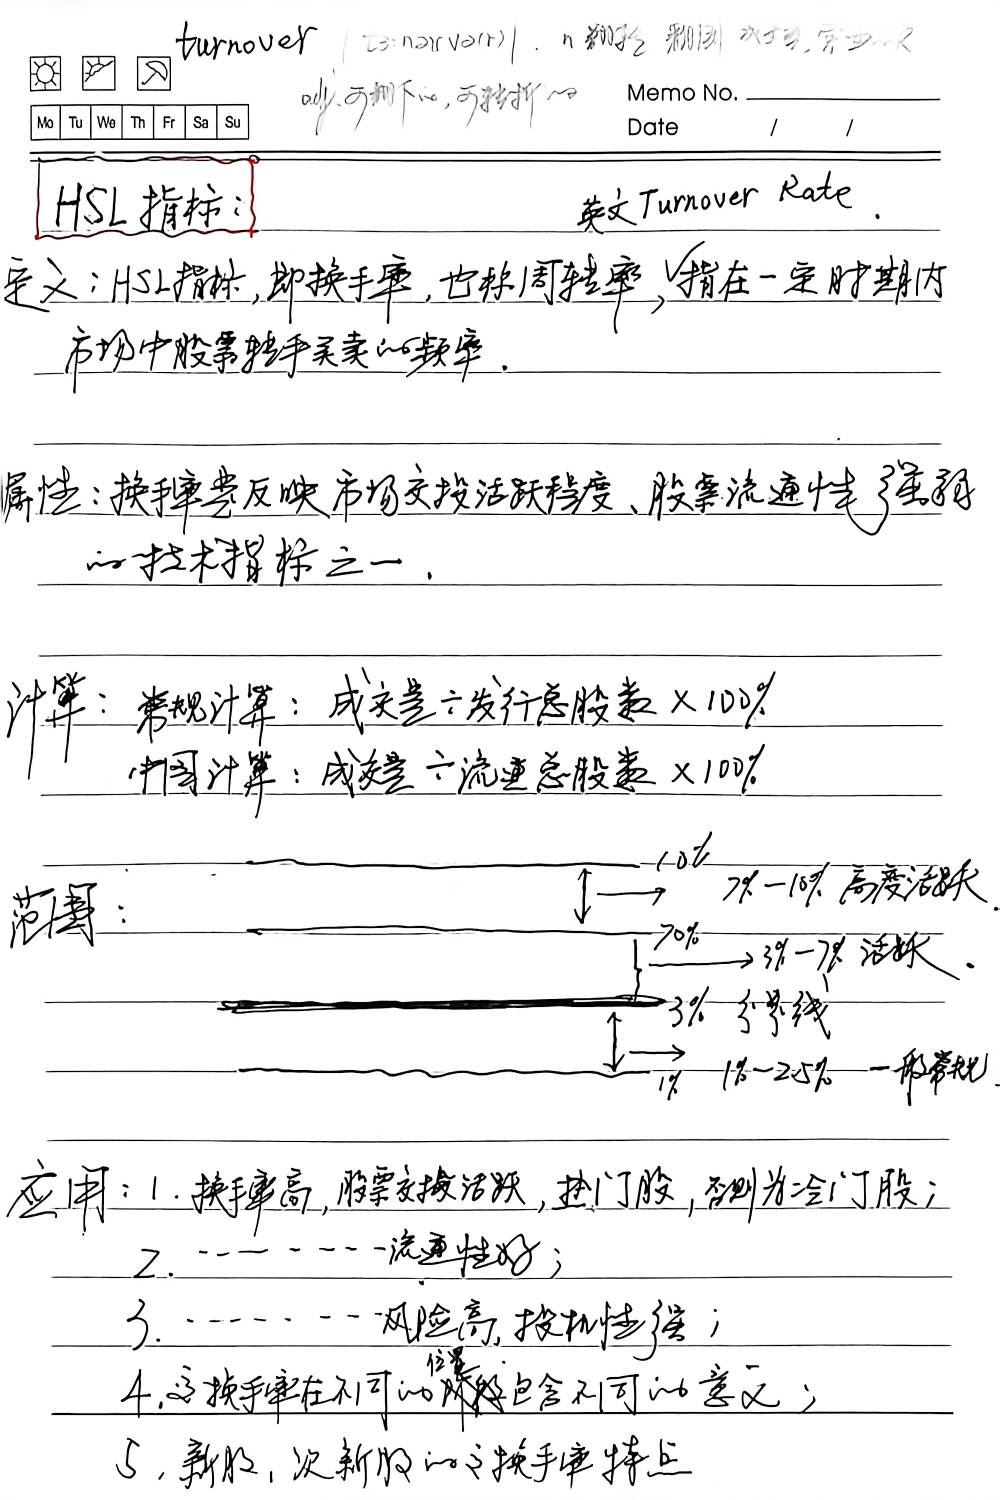 turnover
n 翻转
adj. 可翻下的, 可转折的
Memo No.
Mo Tu We Th Fr Sa Su
Date / /
HSL指标:
英文 Turnover Rate.
定义: HSL指标, 即换手率, 也称周转率, 指在一定时期内
市场中股票转手买卖的频率.
属性: 换手率是反映市场交投活跃程度、股票流通性强弱
的技术指标之一.
计算: 常规计算: 成交量÷发行总股数×100%
中国计算: 成交量÷流通总股数×100%
10%
7%—10% 高度活跃.
范围:
70%
3%—7% 活跃.
3% 分界线
1% 1%~2.5% 一般常规.
应用: 1. 换手率高, 股票交投活跃, 热门股, 否则为冷门股;
2. -------- 流通性好;
3. -------- 风险高, 投机性强;
位置
4. 高换手率在不同的阶段包含不同的意义;
5. 新股, 次新股的高换手率特点